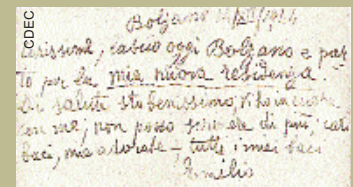 CDEC
Bolzano
Carissimi, lascio oggi Bolzano e par
to per la mia nuova residenza.
Di salute sto benissimo, vi ho in cuore
con me, non posso scrivere di più, cari
baci, mie adorate – tutti i miei baci
Emilio